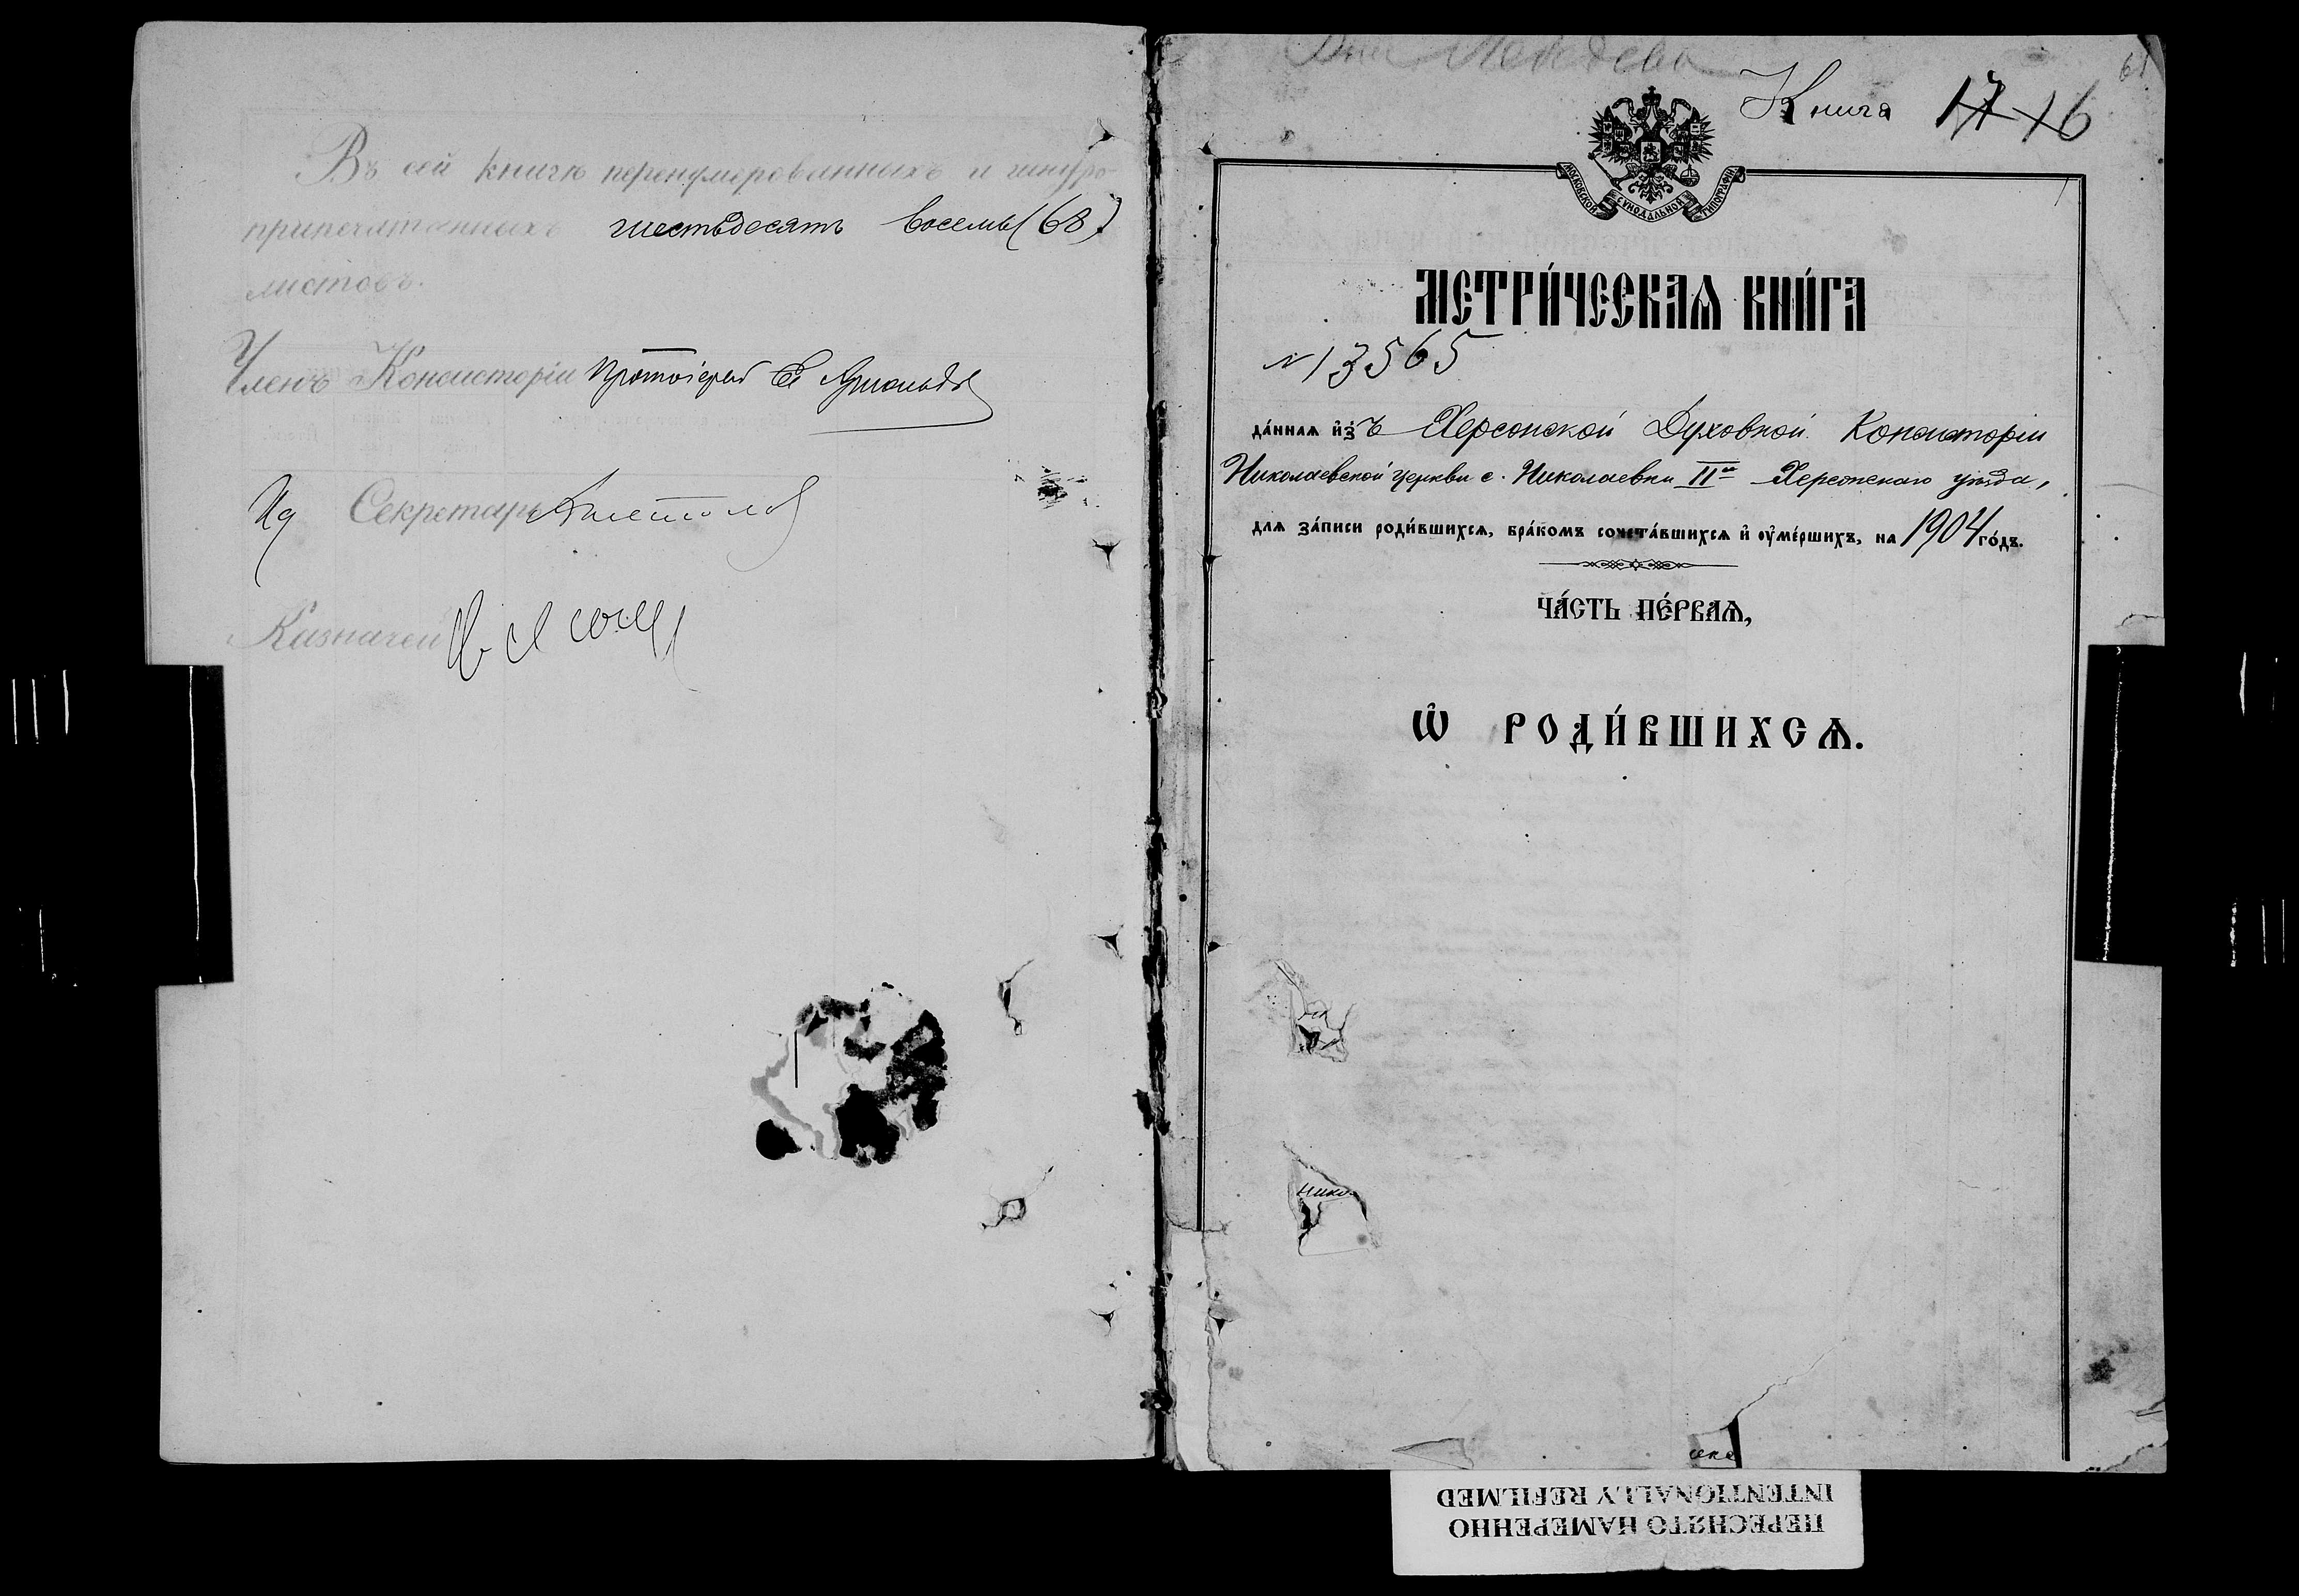 Въ сей книгѣ перенумерованныхъ и шнуро-
припечатанныхъ шестьдесятъ восемь (68)
листовъ.
Членъ Консисторіи Протоіерей
Ид Секретарь
Казначей
Книга 17 16
МОСКОВСКОЙ СѴНОДАЛЬНОЙ ТИПОГРАФІИ
МЕТРИ́ЧЕСКАѦ КНИ́ГА
№ 13565
да́ннаѧ и҆зъ Херсонской Духовной Консисторіи
Николаевской церкви с. Николаевки II й Херсонскаго уѣзда,
длѧ за́писи роди́вшихсѧ, бра́комъ сочета́вшихсѧ и҆ ᲂу҆ме́ршихъ, на 1904 го́дъ.
ЧА́СТЬ ПЕ́РВАѦ,
Ѡ҆ РОДИ́ВШИХСѦ.
Нико
ПЕРЕСНЯТО НАМЕРЕННО
INTENTIONALLY REFILMED